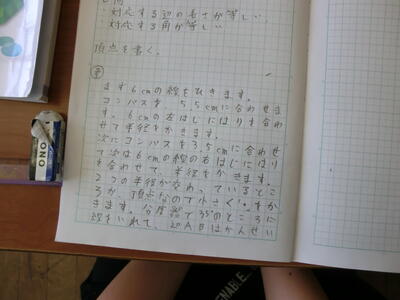 ・対応する辺の長さが等しい
・対応する角が等しい
頂点を書く。
まず6cmの線をひきます。
コンパスを5.5cmに合わせま
す。6cmの右はしにはりを合わ
せて半径をかきます。
次にコンパスを3.5cmに合わせ
て次は6cmの線の右はしにはり
を合わせて、半径をかきます。
2つの半径が交わっているとこ
ろが頂点なので小さく・をか
きます。分度器で35°のところに
線をいれて、辺ABはかんせい
MONO